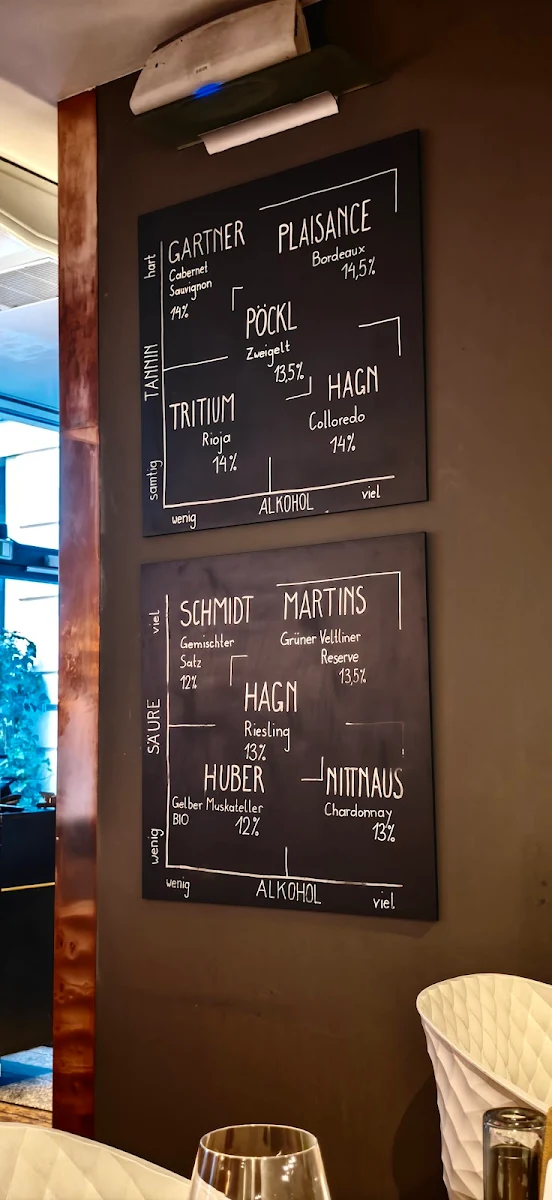 hart
GARTNER
Cabernet
Sauvignon
14%
PLAISANCE
Bordeaux
14,5%
TANNIN
PÖCKL
Zweigelt
13,5%
TRITIUM
Rioja
14%
HAGN
Colloredo
14%
samtig
wenig
ALKOHOL
viel
viel
SCHMIDT
Gemischter
Satz
12%
MARTINS
Grüner Veltliner
Reserve
13,5%
SÄURE
HAGN
Riesling
13%
HUBER
Gelber Muskateller
BIO
12%
NITTNAUS
Chardonnay
13%
wenig
wenig
ALKOHOL
viel